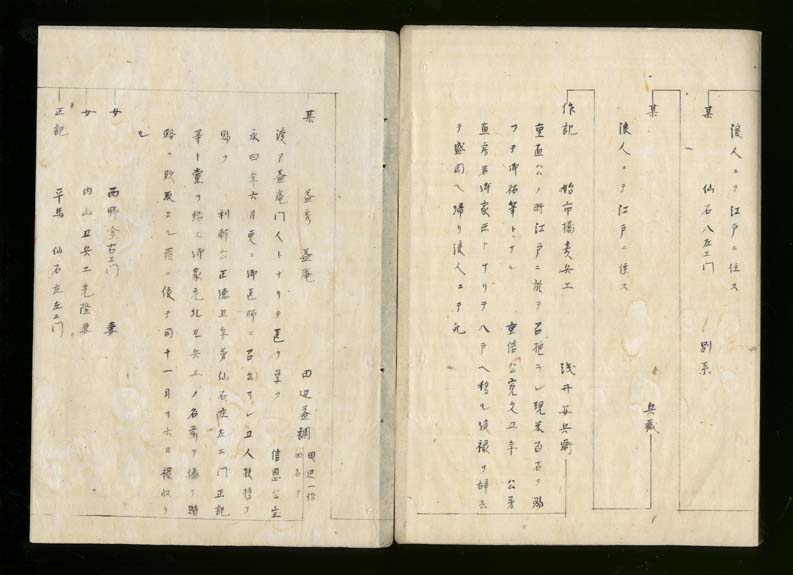 浪人ニテ江戸ニ住ス
某 仙石八左エ門 別系
兵蔵
某
浪人ニテ江戸ニ住ス
作記 始市橋孝兵エ 浅井安兵衛
重孟公ノ時江戸ニ於テ召抱ラレ現米百石ヲ賜
フテ御祐筆トナル 重信公寛文五年 公弟
直房君御家臣トナリテ八戸ヘ移ル後禄ヲ辞シ
テ盛岡ヘ帰リ浪人ニテ死
某 益秀 益庵 田辺益調
渡ア益庵門人トナリテ医ヲ学フ 信恩公宝
永四年六月更ニ御医師ニ召出サレ五人扶持ヲ
賜フ 利幹公正徳五年弟仙石左左エ門正記
等ト党ヲ結ヒ御家老北九兵エノ名前ヲ偽リ賂
路ヲ欺取タル罪ニ依テ同十一月廿六日禄収ラ
ル
女 西野金右エ門 妻
女 内山五兵エ光隆妻
正記 平馬 仙石左左エ門